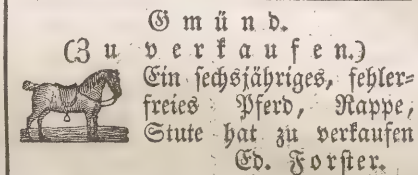 Gmünd.
(Zu verkaufen.)
Ein sechsjähriges, fehler-
freies Pferd, Rappe,
Stute hat zu verkaufen
Ed. Forster.